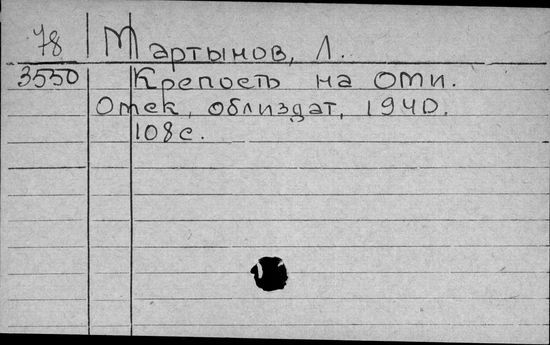 78 Мартынов, Л.
3550 Крепость на Оми.
Омск, облиздат, 1940.
108 с.